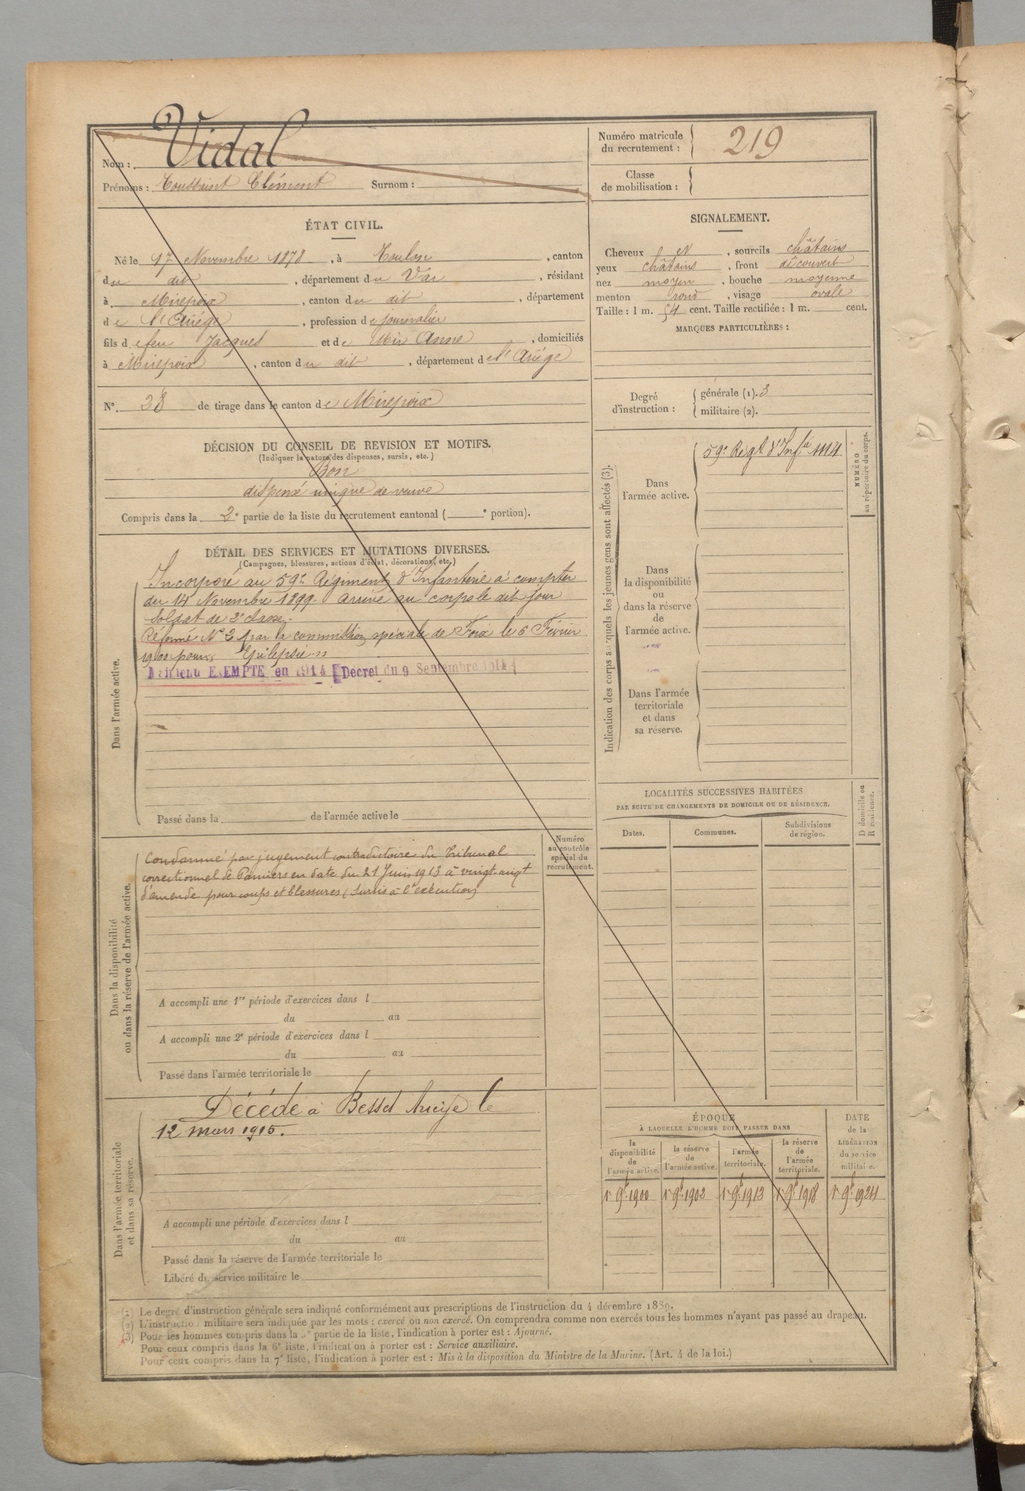 Nom : Vidal
Prénoms : Toussaint Clément Surnom :
Numéro matricule du recrutement : 219
Classe de mobilisation :
ÉTAT CIVIL.
Né le 17 Novembre 1878, à Toulon, canton
du dit, département du Var, résidant
à Mirepoix, canton du dit, département
de l'Ariége, profession de journalier
fils de feu Jacques et de Mir Anne, domiciliés
à Mirepoix, canton du dit, département de l'Ariége
N° 38 de tirage dans le canton de Mirepoix
SIGNALEMENT.
Cheveux N, sourcils châtains
yeux châtains, front découvert
nez moyen, bouche moyenne
menton rond, visage ovale
Taille : 1 m. 54 cent. Taille rectifiée : 1 m. cent.
MARQUES PARTICULIÈRES :
Degré d'instruction : générale (1). 3
militaire (2).
DÉCISION DU CONSEIL DE REVISION ET MOTIFS.
(Indiquer la nature des dispenses, sursis, etc.)
Bon
dispensé unique de veuve
Compris dans la 2e partie de la liste du recrutement cantonal ( e portion).
DÉTAIL DES SERVICES ET MUTATIONS DIVERSES.
(Campagnes, blessures, actions d'éclat, décorations, etc.)
Dans l'armée active.
Incorporé au 59e Régiment d'Infanterie à compter
du 14 Novembre 1899. Arrivé au corps le dit jour
Soldat de 2e classe.
Réformé N° 2 par la commission spéciale de Foix le 6 Février
1900 pour Epilepsie
Maintenu EXEMPTE en 1914 [Decret du 9 Septembre 1914]
Passé dans la de l'armée active le
Indication des corps auxquels les jeunes gens sont affectés (3).
Dans l'armée active.
59e Régt d'Infie 1114
NUMÉRO au répertoire du corps.
Dans la disponibilité ou dans la réserve de l'armée active.
Dans l'armée territoriale et dans sa réserve.
LOCALITÉS SUCCESSIVES HABITÉES
PAR SUITE DE CHANGEMENTS DE DOMICILE OU DE RÉSIDENCE.
Dates. Communes. Subdivisions de région. D domicile ou R résidence.
Dans la disponibilité ou dans la réserve de l'armée active.
Numéro au contrôle spécial du recrutement.
Condamné par jugement contradictoire du Tribunal
correctionnel de Pamiers en date du 21 Juin 1913 à vingt-cinq f
d'amende pour coups et blessures (Sursis à l'exécution)
A accompli une 1re période d'exercices dans l
du au
A accompli une 2e période d'exercices dans l
du au
Passé dans l'armée territoriale le
Dans l'armée territoriale et dans sa réserve.
Décédé à Besset Ariège le
12 mars 1916.
A accompli une période d'exercices dans l
du au
Passé dans la réserve de l'armée territoriale le
Libéré du service militaire le
ÉPOQUE
À LAQUELLE L'HOMME DOIT PASSER DANS
la disponibilité de l'armée active. la réserve de l'armée active. l'armée territoriale. la réserve de l'armée territoriale. DATE de la LIBÉRATION du service militaire.
1r 9bre 1900 1r 9bre 1902 1r 9bre 1912 1r 9bre 1918 1r 9bre 1924
(1) Le degré d'instruction générale sera indiqué conformément aux prescriptions de l'instruction du 4 décembre 1889.
(2) L'instruction militaire sera indiquée par les mots : exercé ou non exercé. On comprendra comme non exercés tous les hommes n'ayant pas passé au drapeau.
(3) Pour les hommes compris dans la 5e partie de la liste, l'indication à porter est : Ajourné.
Pour ceux compris dans la 6e liste, l'indication à porter est : Service auxiliaire.
Pour ceux compris dans la 7e liste, l'indication à porter est : Mis à la disposition du Ministre de la Marine. (Art. 4 de la loi.)